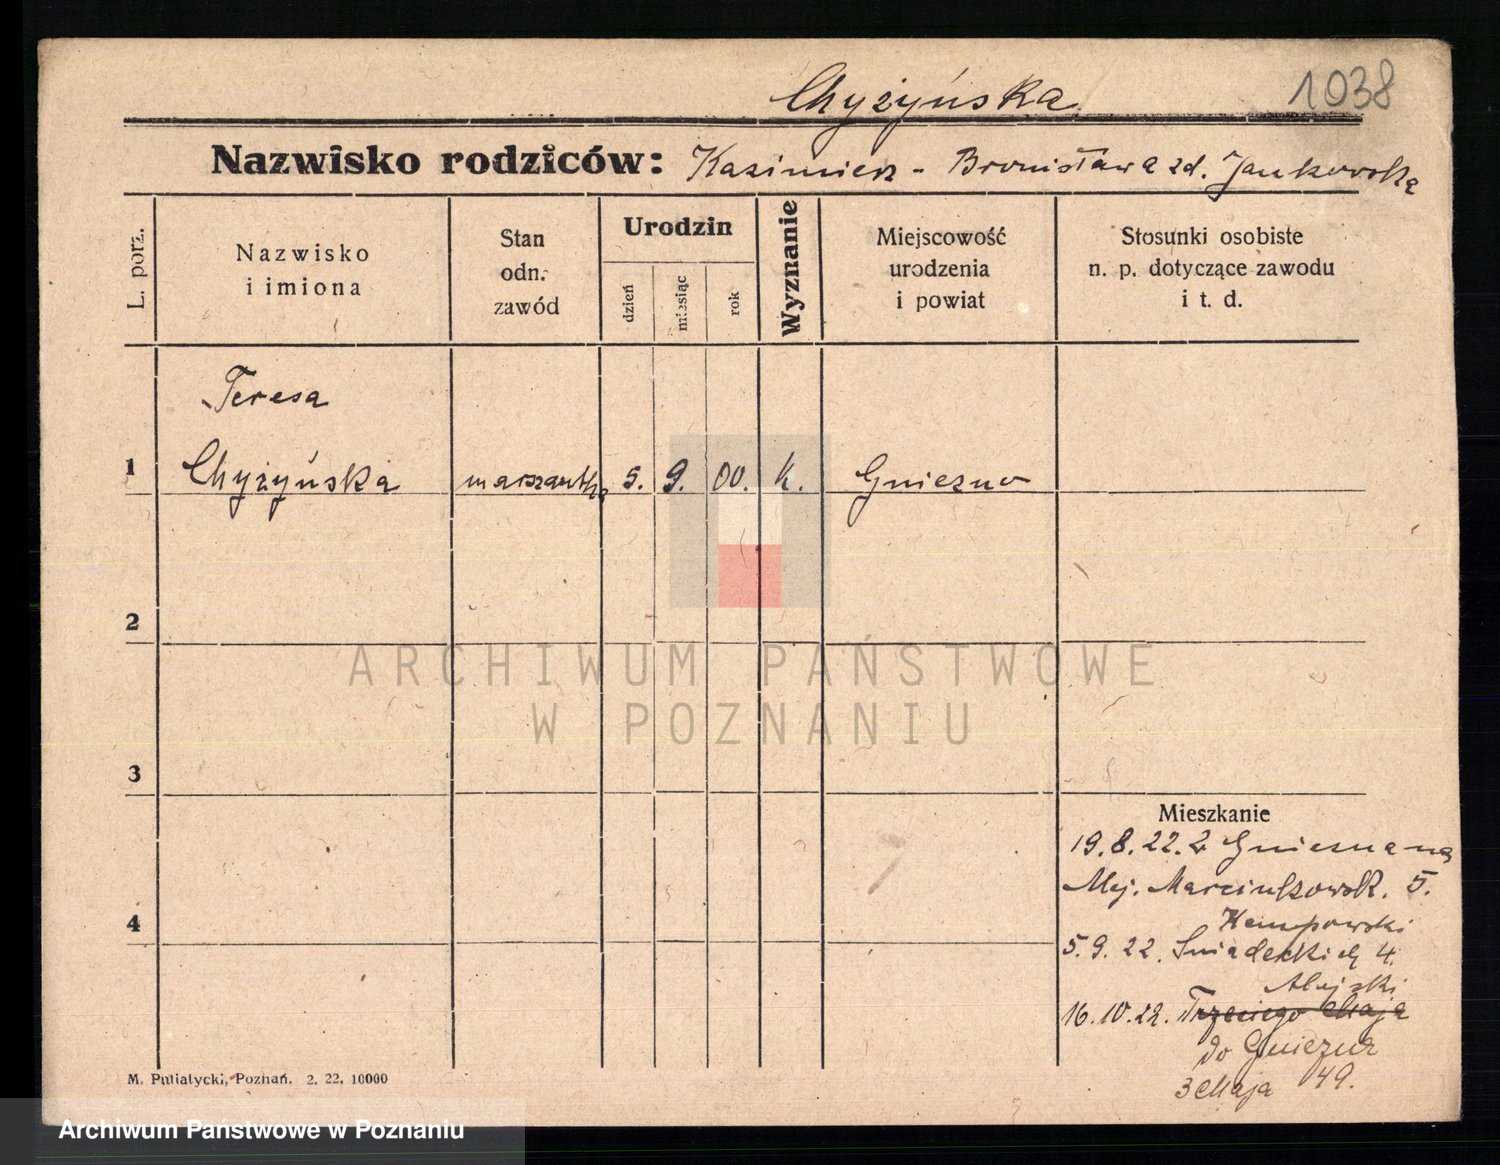 Chyżyńska 1038
Nazwisko rodziców: Kazimierz - Bronisława zd. Jankowska
L. porz.
Nazwisko
i imiona
Stan
odn.
zawód
Urodzin
dzień
miesiąc
rok
Wyznanie
Miejscowość
urodzenia
i powiat
Stosunki osobiste
n. p. dotyczące zawodu
i t. d.
Teresa
1 Chyżyńska marszantka 5. 9. 00. k. Gniezno
2
3
4
Mieszkanie
19.8.22. z Gniezna na
Alej. Marcinkowsk. 5.
Kempowski
5.9.22. Śniadeckich 4.
Alejski
16.10.22. Trzeciego Maja
do Gniezna
3 Maja 49.
M. Putiatycki, Poznań. 2. 22. 10000
ARCHIWUM PAŃSTWOWE
W POZNANIU
Archiwum Państwowe w Poznaniu